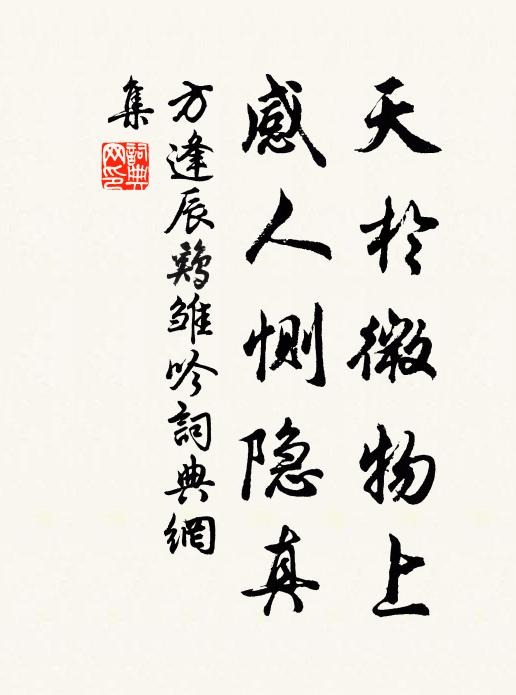 天於微物上
感人恻隐真
方逢辰鷄雏吟詞典網
集
詞典网印